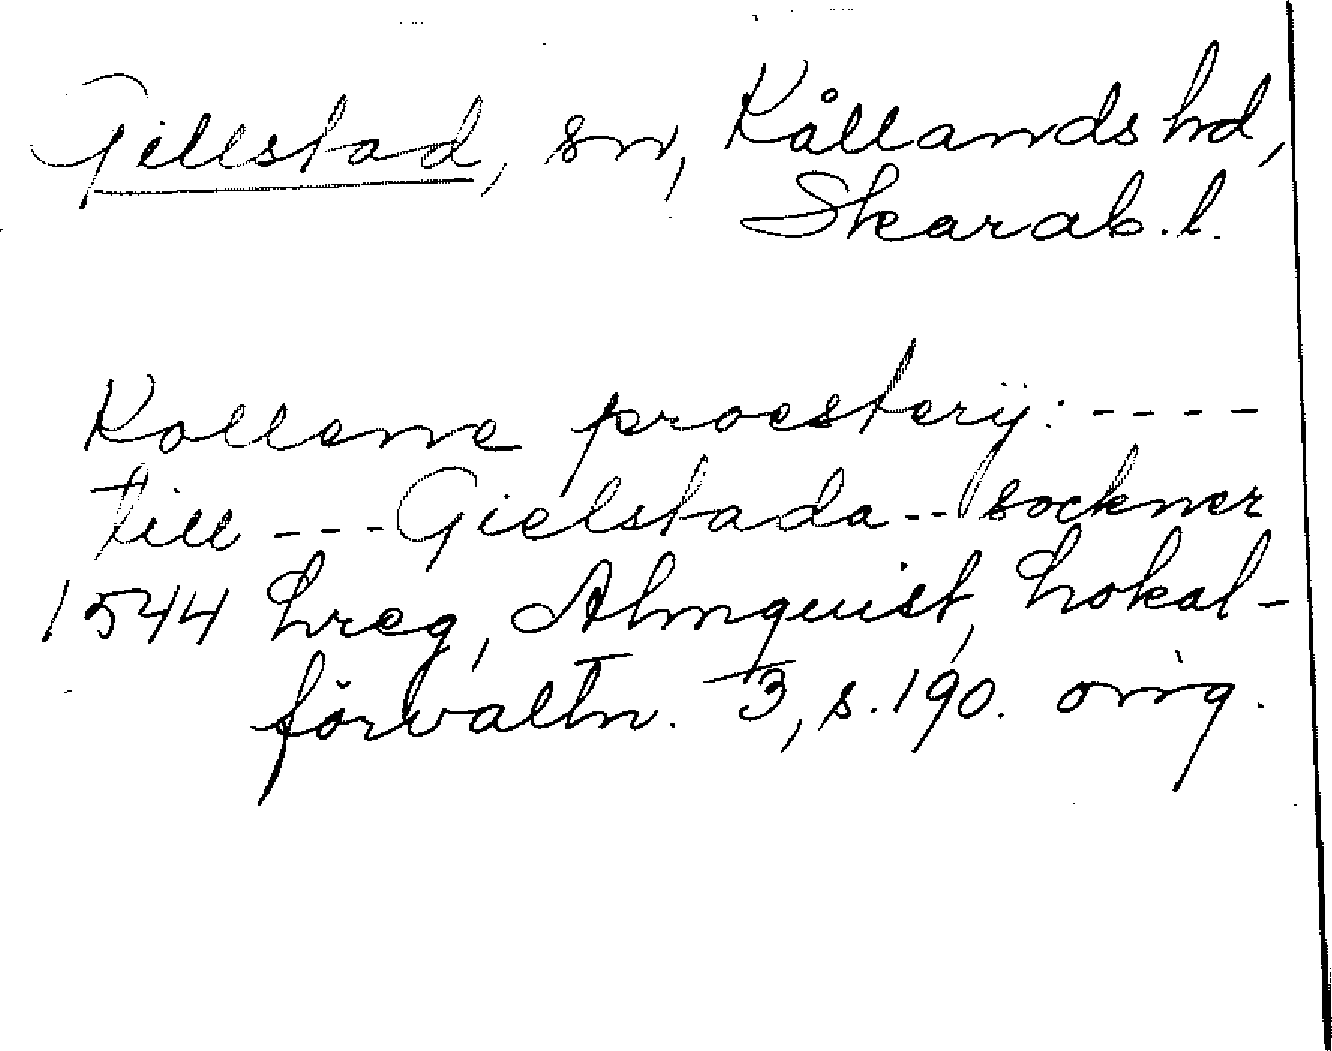 Gillstad, sn, Kållands hd,
Skarab. l.
Kollene proesterÿ: ----
till --- Gielstada -- sockner
1544 Lreg, Almquist, Lokal-
förvaltn. 3, s. 190. orig.